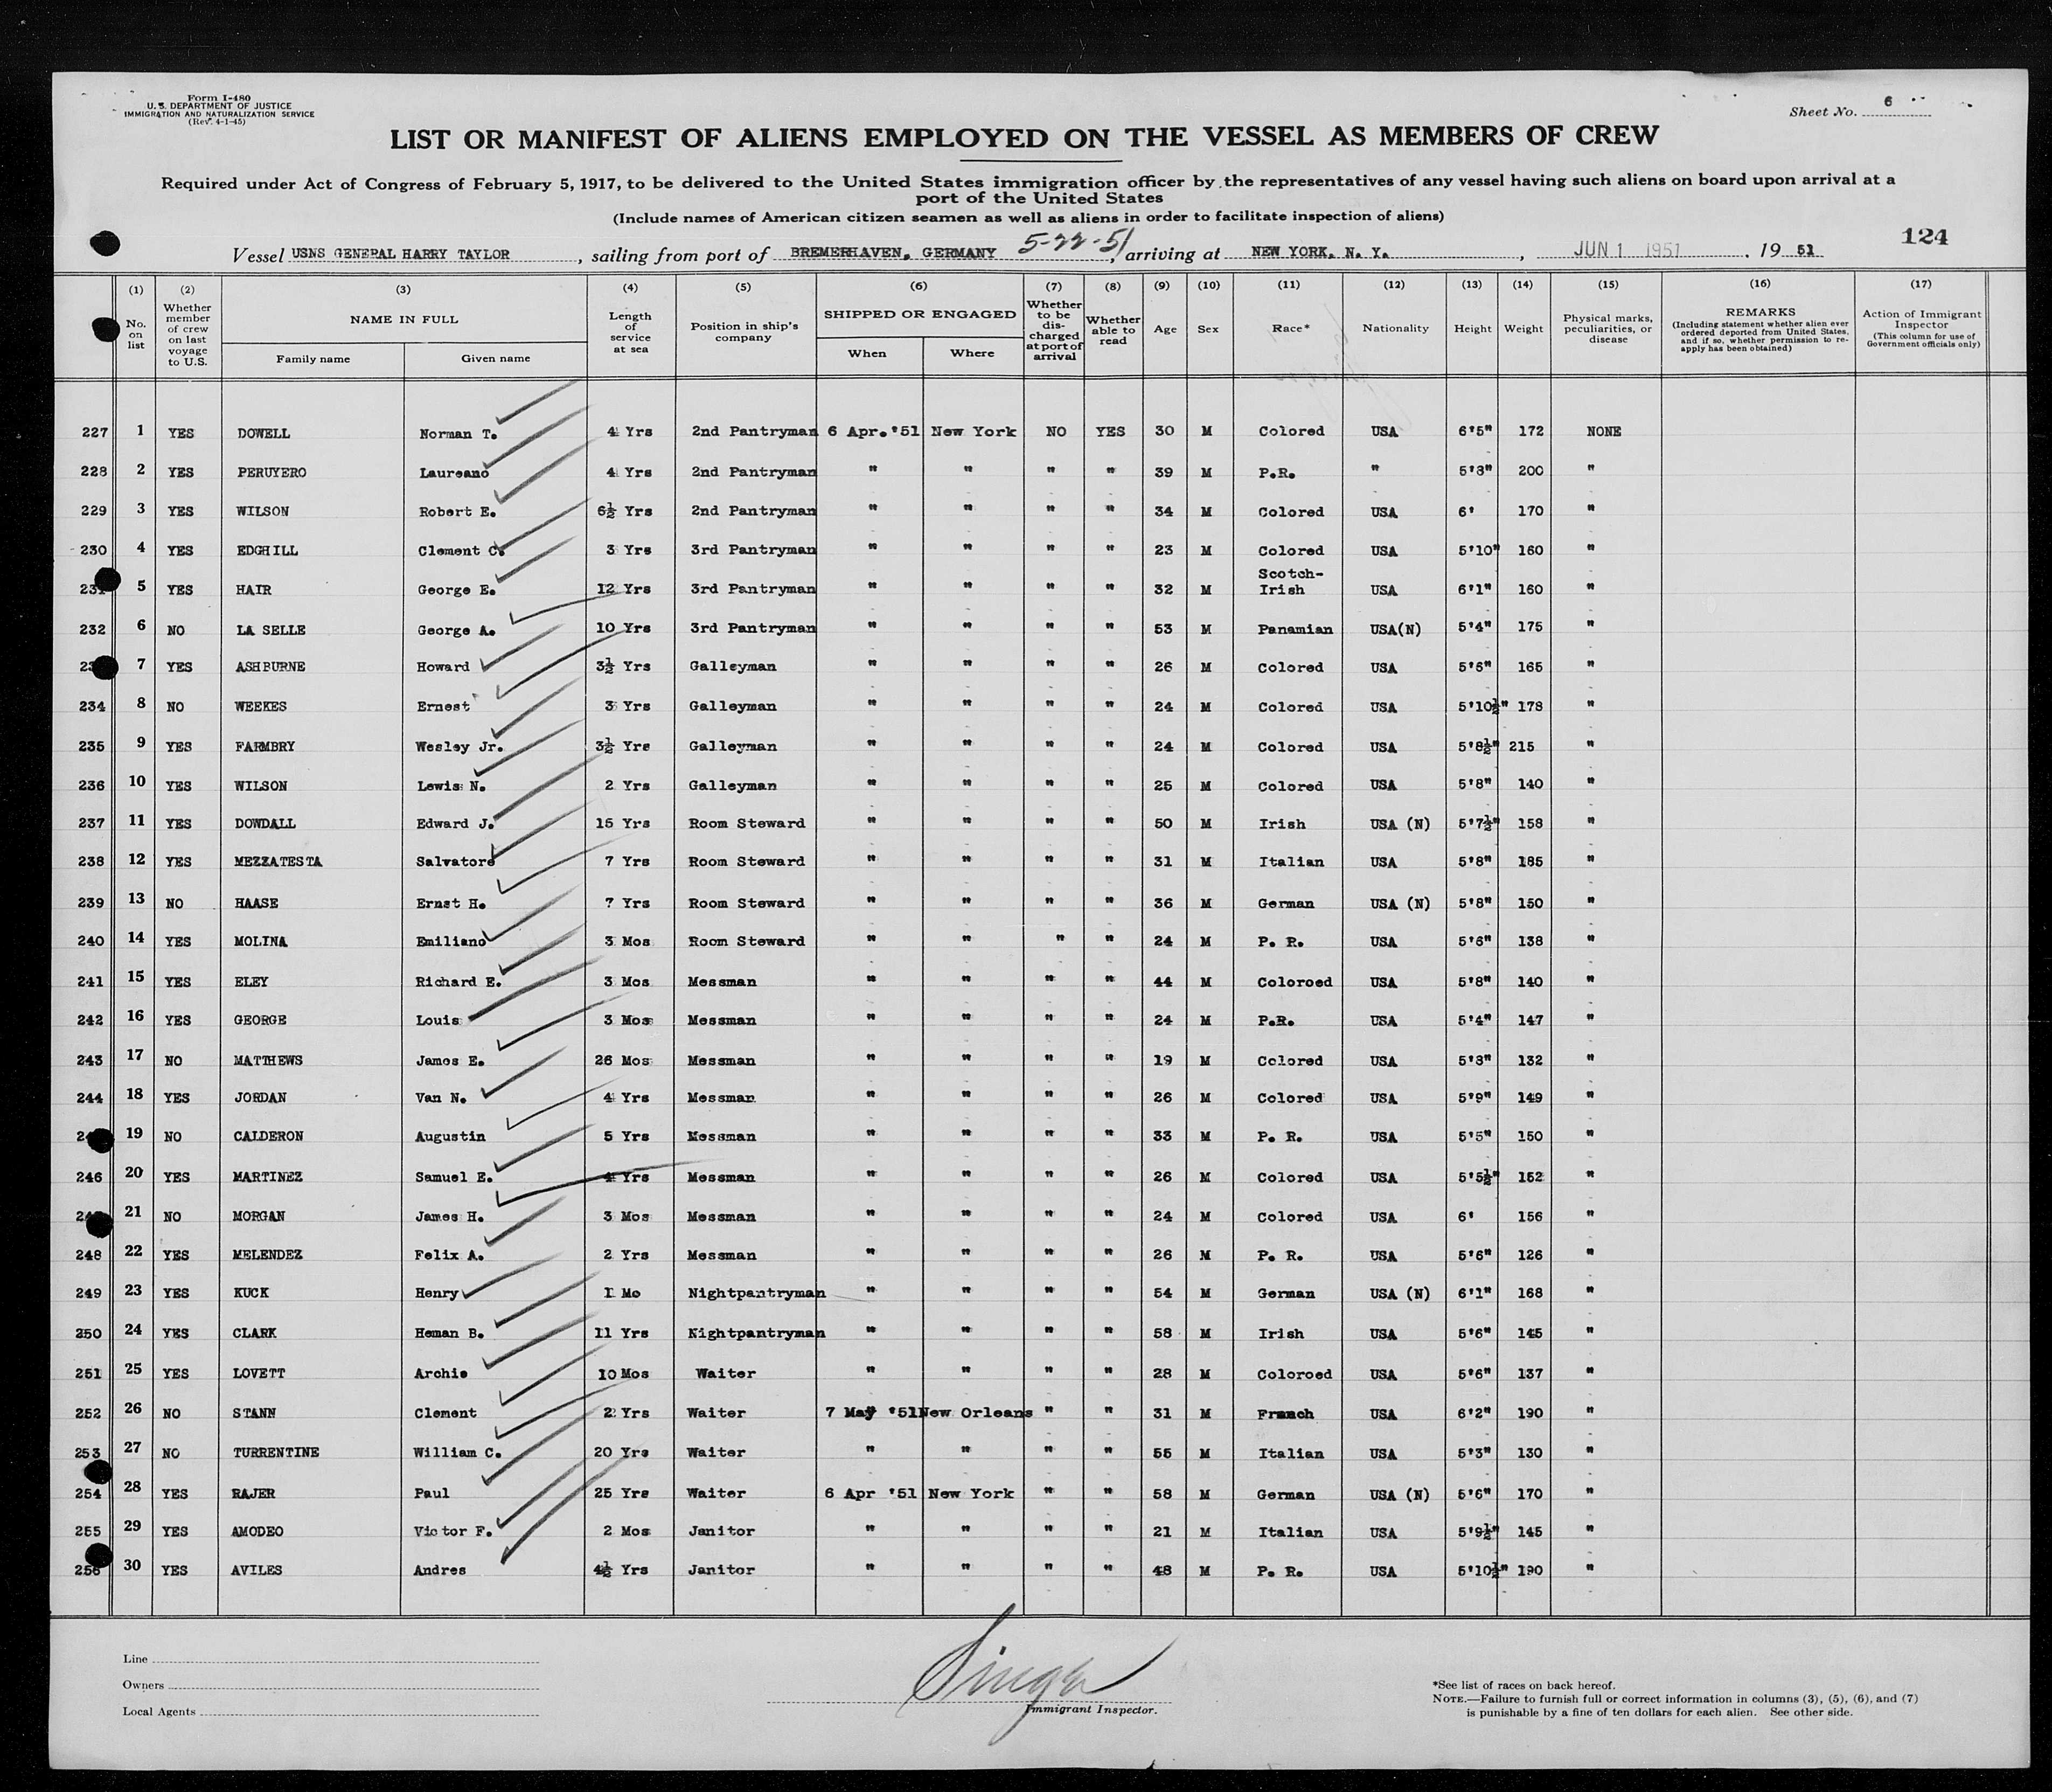 Form I-480
U. S. DEPARTMENT OF JUSTICE
IMMIGRATION AND NATURALIZATION SERVICE
(Rev. 4-1-45)
Sheet No. 6
LIST OR MANIFEST OF ALIENS EMPLOYED ON THE VESSEL AS MEMBERS OF CREW
Required under Act of Congress of February 5, 1917, to be delivered to the United States immigration officer by the representatives of any vessel having such aliens on board upon arrival at a
port of the United States
(Include names of American citizen seamen as well as aliens in order to facilitate inspection of aliens)
124
Vessel USNS GENERAL HARRY TAYLOR, sailing from port of BREMERHAVEN, GERMANY 5-22-51, arriving at NEW YORK, N. Y., JUN 1 1951, 19 51
(1) No. on list
(2) Whether member of crew on last voyage to U.S.
(3) NAME IN FULL Family name Given name
(4) Length of service at sea
(5) Position in ship's company
(6) SHIPPED OR ENGAGED When Where
(7) Whether to be discharged at port of arrival
(8) Whether able to read
(9) Age
(10) Sex
(11) Race*
(12) Nationality
(13) Height
(14) Weight
(15) Physical marks, peculiarities, or disease
(16) REMARKS (Including statement whether alien ever ordered deported from United States, and if so, whether permission to re-apply has been obtained)
(17) Action of Immigrant Inspector (This column for use of Government officials only)
227 1 YES DOWELL Norman T. 4 Yrs 2nd Pantryman 6 Apr. '51 New York NO YES 30 M Colored USA 6'5" 172 NONE
228 2 YES PERUYERO Laureano 4 Yrs 2nd Pantryman " " " " 39 M P.R. " 5'3" 200 "
229 3 YES WILSON Robert E. 6½ Yrs 2nd Pantryman " " " " 34 M Colored USA 6' 170 "
230 4 YES EDGHILL Clement C. 3 Yrs 3rd Pantryman " " " " 23 M Colored USA 5'10" 160 "
231 5 YES HAIR George E. 12 Yrs 3rd Pantryman " " " " 32 M Scotch-Irish USA 6'1" 160 "
232 6 NO LA SELLE George A. 10 Yrs 3rd Pantryman " " " " 53 M Panamian USA(N) 5'4" 175 "
7 YES ASHBURNE Howard 3½ Yrs Galleyman " " " " 26 M Colored USA 5'6" 165 "
234 8 NO WEEKES Ernest 3 Yrs Galleyman " " " " 24 M Colored USA 5'10½" 178 "
235 9 YES FARMBRY Wesley Jr. 3½ Yrs Galleyman " " " " 24 M Colored USA 5'8½" 215 "
236 10 YES WILSON Lewis N. 2 Yrs Galleyman " " " " 25 M Colored USA 5'8" 140 "
237 11 YES DOWDALL Edward J. 15 Yrs Room Steward " " " " 50 M Irish USA (N) 5'7½" 158 "
238 12 YES MEZZATESTA Salvatore 7 Yrs Room Steward " " " " 31 M Italian USA 5'8" 185 "
239 13 NO HAASE Ernst H. 7 Yrs Room Steward " " " " 36 M German USA (N) 5'8" 150 "
240 14 YES MOLINA Emiliano 3 Mos Room Steward " " " " 24 M P. R. USA 5'6" 138 "
241 15 YES ELEY Richard E. 3 Mos Messman " " " " 44 M Coloroed USA 5'8" 140 "
242 16 YES GEORGE Louis 3 Mos Messman " " " " 24 M P.R. USA 5'4" 147 "
243 17 NO MATTHEWS James E. 26 Mos Messman " " " " 19 M Colored USA 5'8" 132 "
244 18 YES JORDAN Van N. 4 Yrs Messman " " " " 26 M Colored USA 5'9" 149 "
19 NO CALDERON Augustin 5 Yrs Messman " " " " 33 M P. R. USA 5'5" 150 "
246 20 YES MARTINEZ Samuel E. 4 Yrs Messman " " " " 26 M Colored USA 5'5½" 152 "
21 NO MORGAN James H. 3 Mos Messman " " " " 24 M Colored USA 6' 156 "
248 22 YES MELENDEZ Felix A. 2 Yrs Messman " " " " 26 M P. R. USA 5'6" 126 "
249 23 YES KUCK Henry 1 Mo Nightpantryman " " " " 54 M German USA (N) 6'1" 168 "
250 24 YES CLARK Heman B. 11 Yrs Nightpantryman " " " " 58 M Irish USA 5'6" 145 "
251 25 YES LOVETT Archie 10 Mos Waiter " " " " 28 M Coloroed USA 5'6" 137 "
252 26 NO STANN Clement 2 Yrs Waiter 7 May '51 New Orleans " " 31 M French USA 6'2" 190 "
253 27 NO TURRENTINE William C. 20 Yrs Waiter " " " " 55 M Italian USA 5'3" 130 "
254 28 YES RAJER Paul 25 Yrs Waiter 6 Apr '51 New York " " 58 M German USA (N) 5'6" 170 "
255 29 YES AMODEO Victor F. 2 Mos Janitor " " " " 21 M Italian USA 5'9½" 145 "
256 30 YES AVILES Andres 4½ Yrs Janitor " " " " 48 M P. R. USA 5'10½" 190 "
Line
Owners
Local Agents
Immigrant Inspector.
*See list of races on back hereof.
NOTE.—Failure to furnish full or correct information in columns (3), (5), (6), and (7)
is punishable by a fine of ten dollars for each alien. See other side.